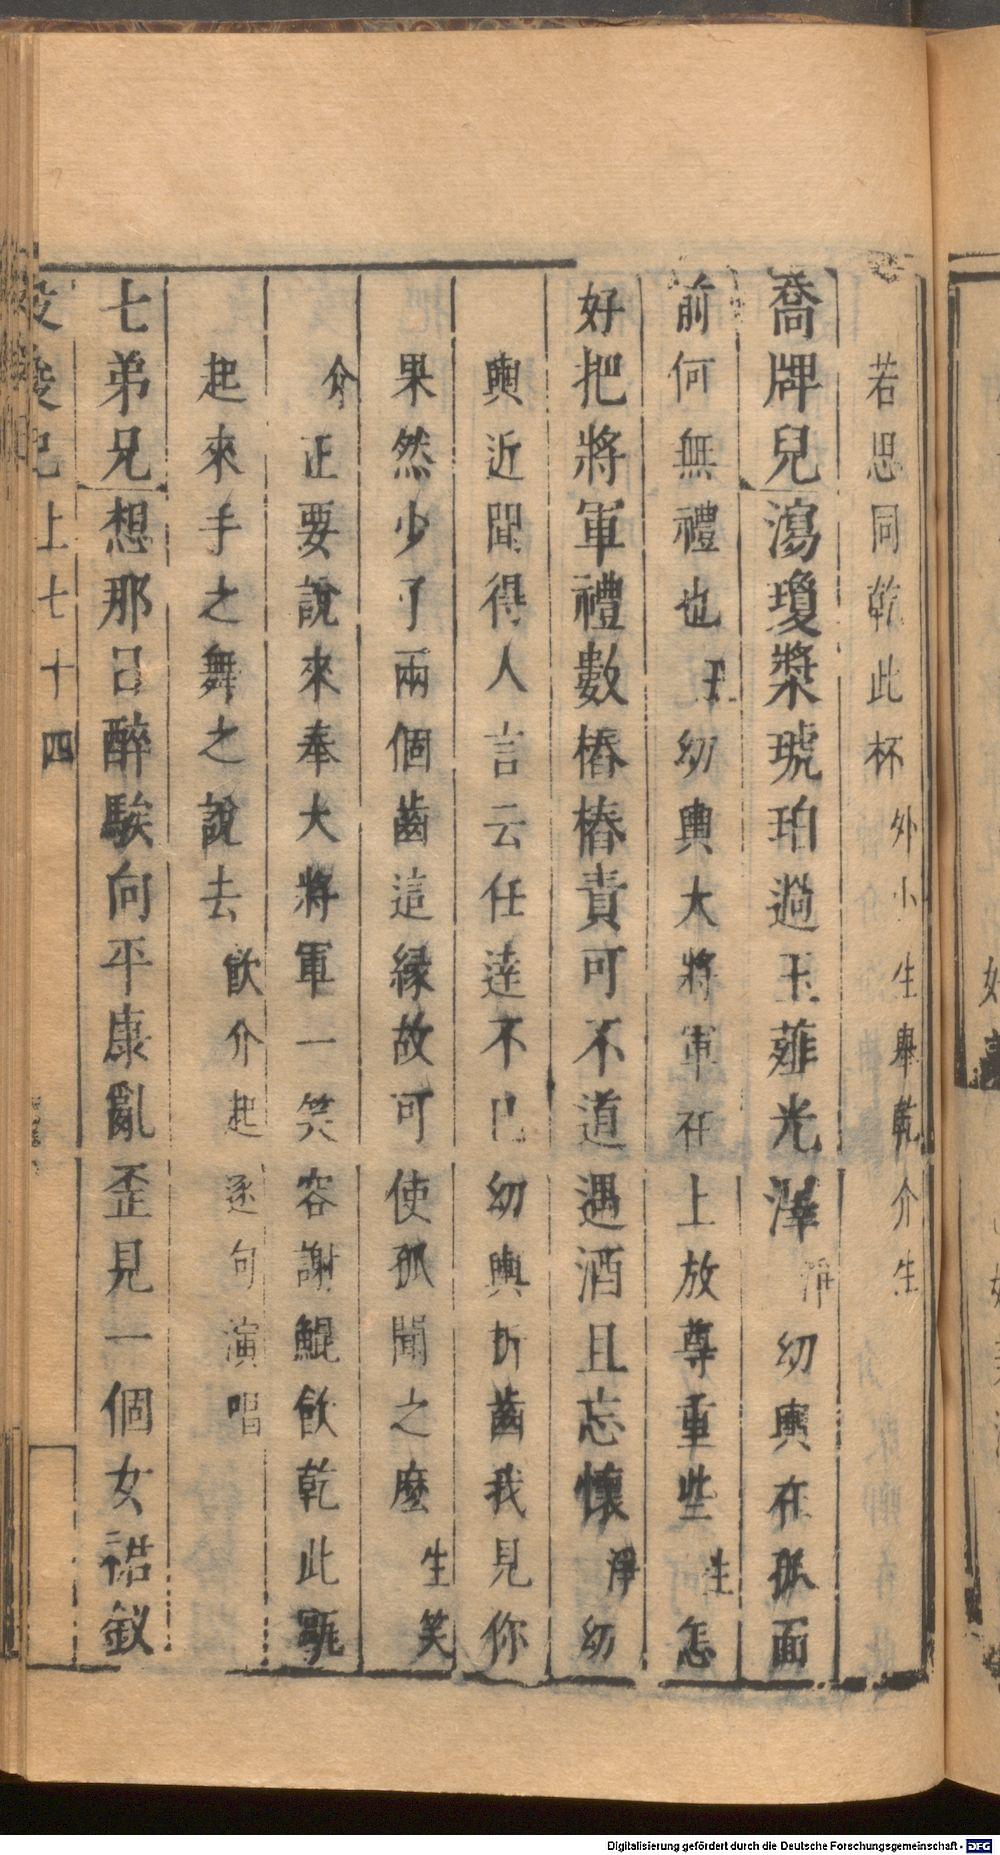 若思同乾此杯外小生舉乾介生
喬牌兒瀉瓊漿琥珀過玉薤光澤淨幼輿在孤面
前何無禮也王幼輿大將軍在上放尊重些生怎
好把將軍禮數樁樁責可不道遇酒且忘懷淨幼
輿近聞得人言云任達不已幼輿折齒我見你
果然少了兩個齒這緣故可使孤聞之麼生笑
介正要說來奉大將軍一笑容謝鯤飲乾此甌
起來手之舞之說去飲介起逐句演唱
七弟兄想那日醉騃向平康亂歪見一個女裙釵
投梭記上七十四
Digitalisierung gefördert durch die Deutsche Forschungsgemeinschaft - DFG